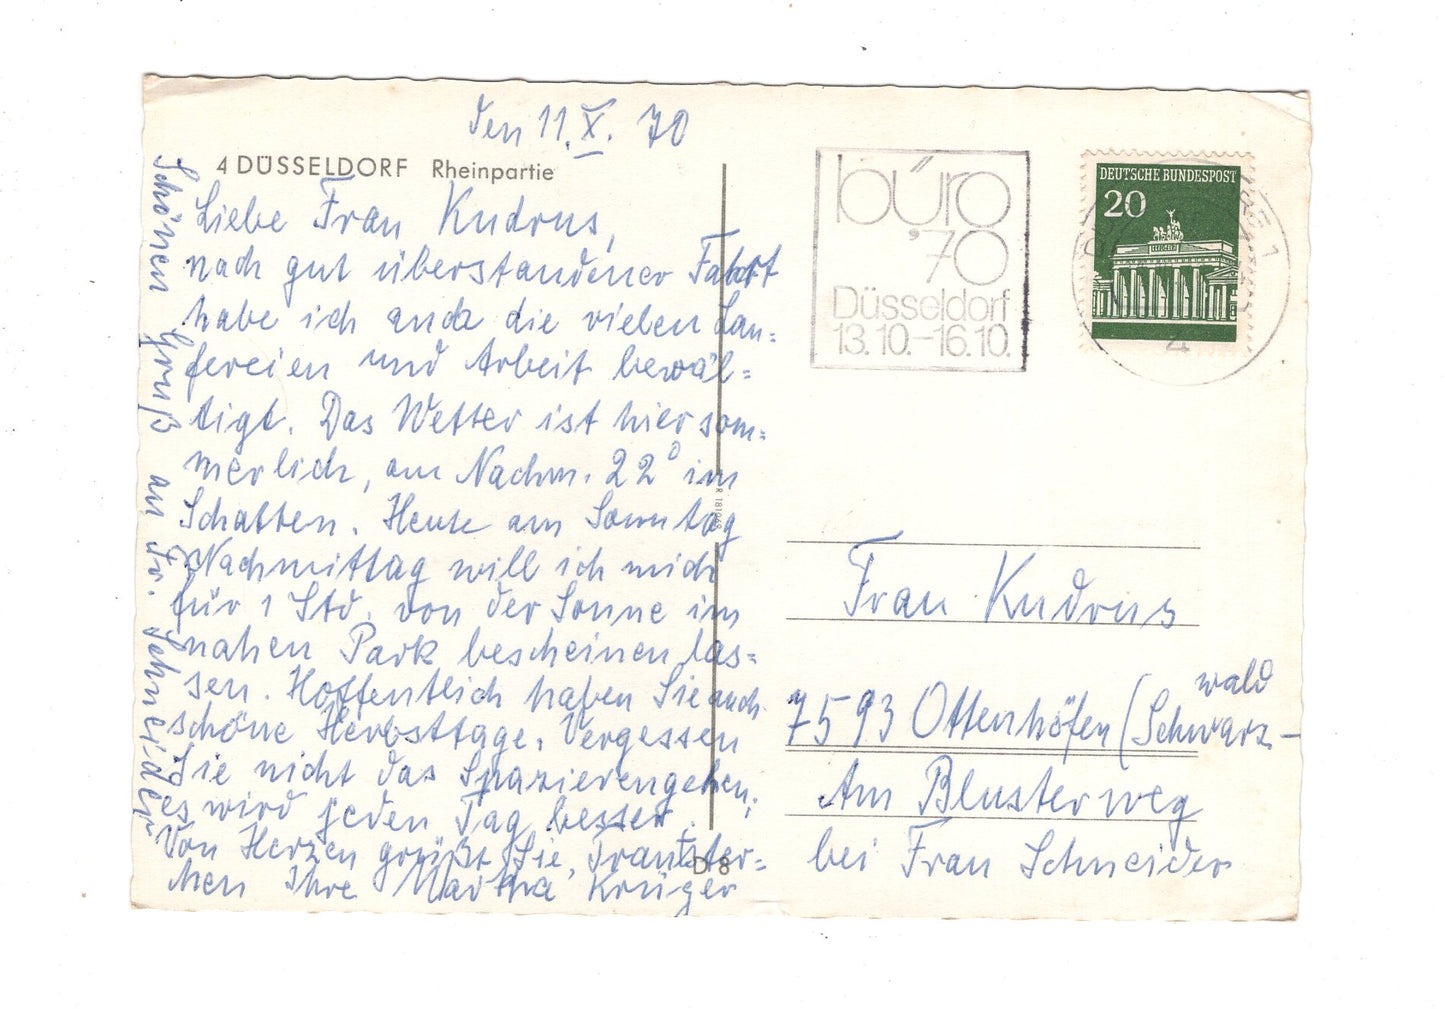 den 11. X. 70
4 DÜSSELDORF Rheinpartie
Liebe Frau Kudrus,
nach gut überstandener Fahrt
habe ich auch die vielen Lau=
fereien und Arbeit bewäl=
tigt. Das Wetter ist hier som=
merlich, am Nachm. 22° im
Schatten. Heute am Sonntag
Nachmittag will ich mich
für 1 Std. von der Sonne im
nahen Park bescheinen las=
sen. Hoffentlich haben Sie auch
schöne Herbsttage. Vergessen
Sie nicht das Spazierengehen,
es wird jeden Tag besser.
Von Herzen grüßt Sie,
chen Ihre Martha Krüger
Schönen Gruß an Fr. Schneider
büro
'70
Düsseldorf
13.10.–16.10.
DEUTSCHE BUNDESPOST
20
4
Frau Kudrus
7593 Ottenhöfen (Schwarz-
wald
Am Blusterweg
bei Frau Schneider
D 8